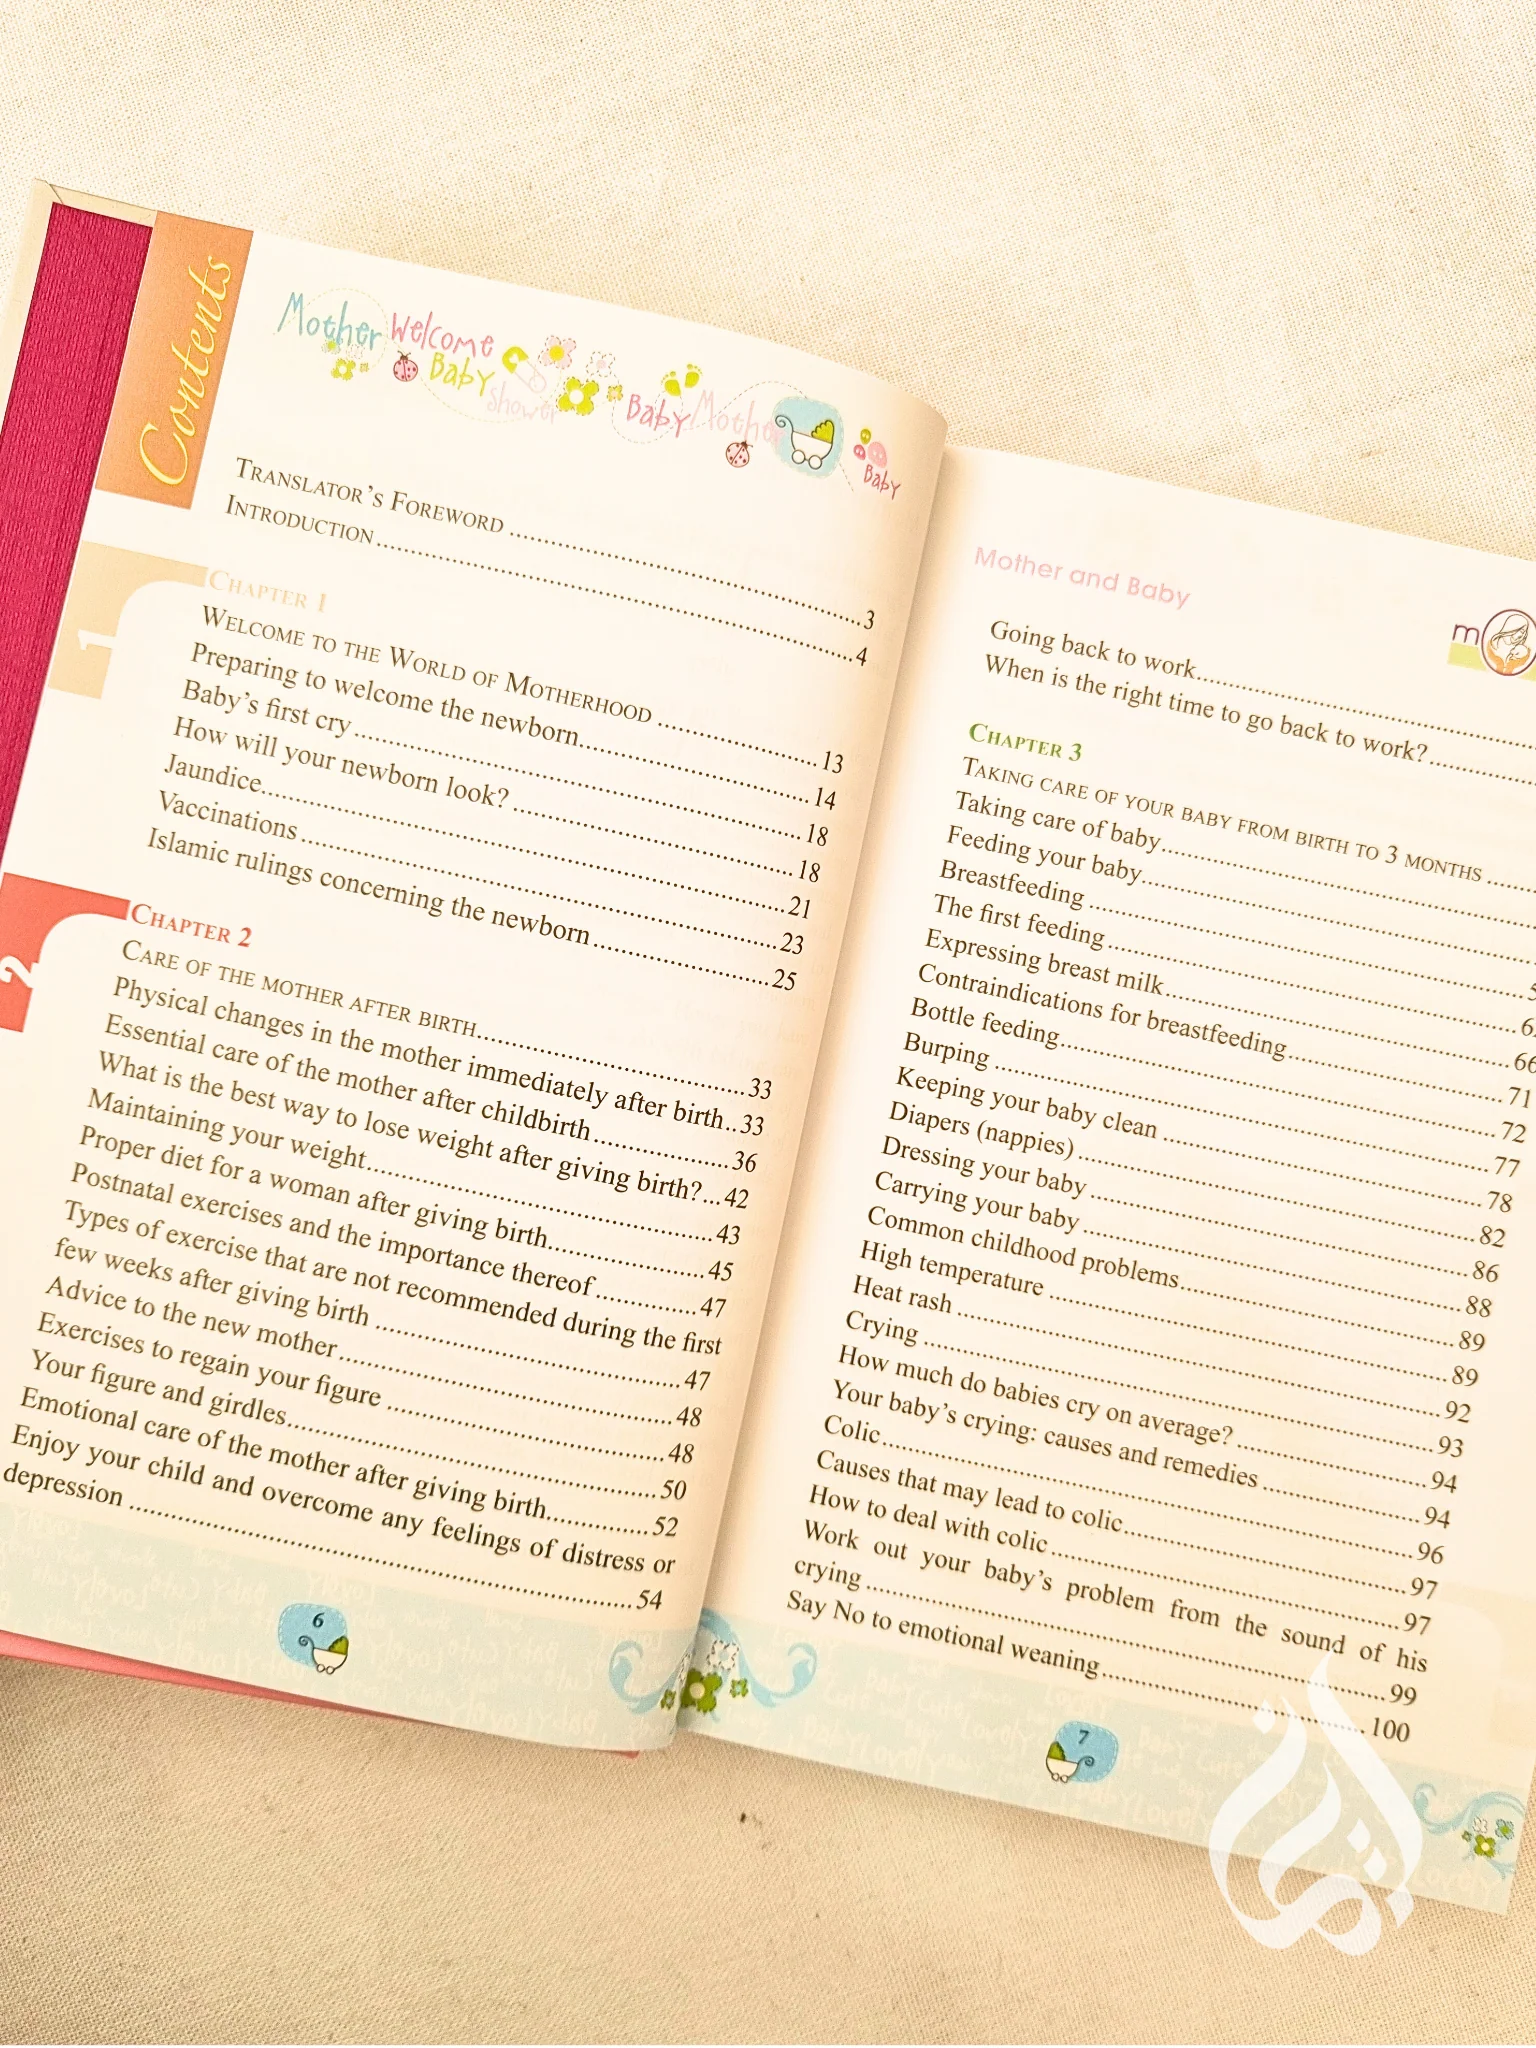 Contents
Mother Welcome
Baby
Shower
Baby Mother
Baby
TRANSLATOR'S FOREWORD ........ 3
INTRODUCTION ........ 4
CHAPTER 1
1
WELCOME TO THE WORLD OF MOTHERHOOD ........ 13
Preparing to welcome the newborn ........ 14
Baby's first cry ........ 18
How will your newborn look? ........ 18
Jaundice ........ 21
Vaccinations ........ 23
Islamic rulings concerning the newborn ........ 25
CHAPTER 2
2
CARE OF THE MOTHER AFTER BIRTH ........ 33
Physical changes in the mother immediately after birth..33
Essential care of the mother after childbirth ........ 36
What is the best way to lose weight after giving birth?...42
Maintaining your weight ........ 43
Proper diet for a woman after giving birth ........ 45
Postnatal exercises and the importance thereof ........ 47
Types of exercise that are not recommended during the first
few weeks after giving birth ........ 47
Advice to the new mother ........ 48
Exercises to regain your figure ........ 48
Your figure and girdles ........ 50
Emotional care of the mother after giving birth ........ 52
Enjoy your child and overcome any feelings of distress or
depression ........ 54
6
Mother and Baby
m
Going back to work ........
When is the right time to go back to work? ........
CHAPTER 3
TAKING CARE OF YOUR BABY FROM BIRTH TO 3 MONTHS ........
Taking care of baby ........
Feeding your baby ........
Breastfeeding ........
The first feeding ........
Expressing breast milk ........ 66
Contraindications for breastfeeding ........ 71
Bottle feeding ........ 72
Burping ........ 77
Keeping your baby clean ........ 78
Diapers (nappies) ........ 82
Dressing your baby ........ 86
Carrying your baby ........ 88
Common childhood problems ........ 89
High temperature ........ 89
Heat rash ........ 92
Crying ........ 93
How much do babies cry on average? ........ 94
Your baby's crying: causes and remedies ........ 94
Colic ........ 96
Causes that may lead to colic ........ 97
How to deal with colic ........ 97
Work out your baby's problem from the sound of his
crying ........ 99
Say No to emotional weaning ........ 100
7